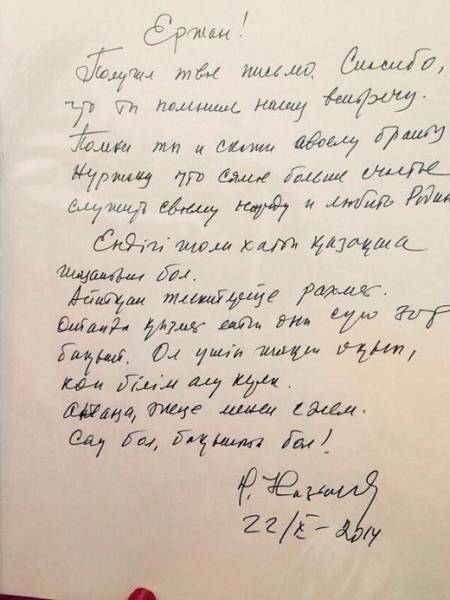 Ержан!
Получил твое письмо. Спасибо,
что ты помнишь нашу встречу.
Помни ты и скажи своему брату
Нуржану что самое большое счастье
служить своему народу и любить Родину
Ендігі жолы хатты қазақша
жазатын бол.
Айтқан тілектеріңе рахмет.
Отанға қызмет ететін оны сүю зор
бақыт. Ол үшін жақсы оқып,
көп білім алу керек.
Атаңа, әжеңе менен сәлем.
Сау бол, бақытты бол!
Н. Назарбаев
22/IX-2014